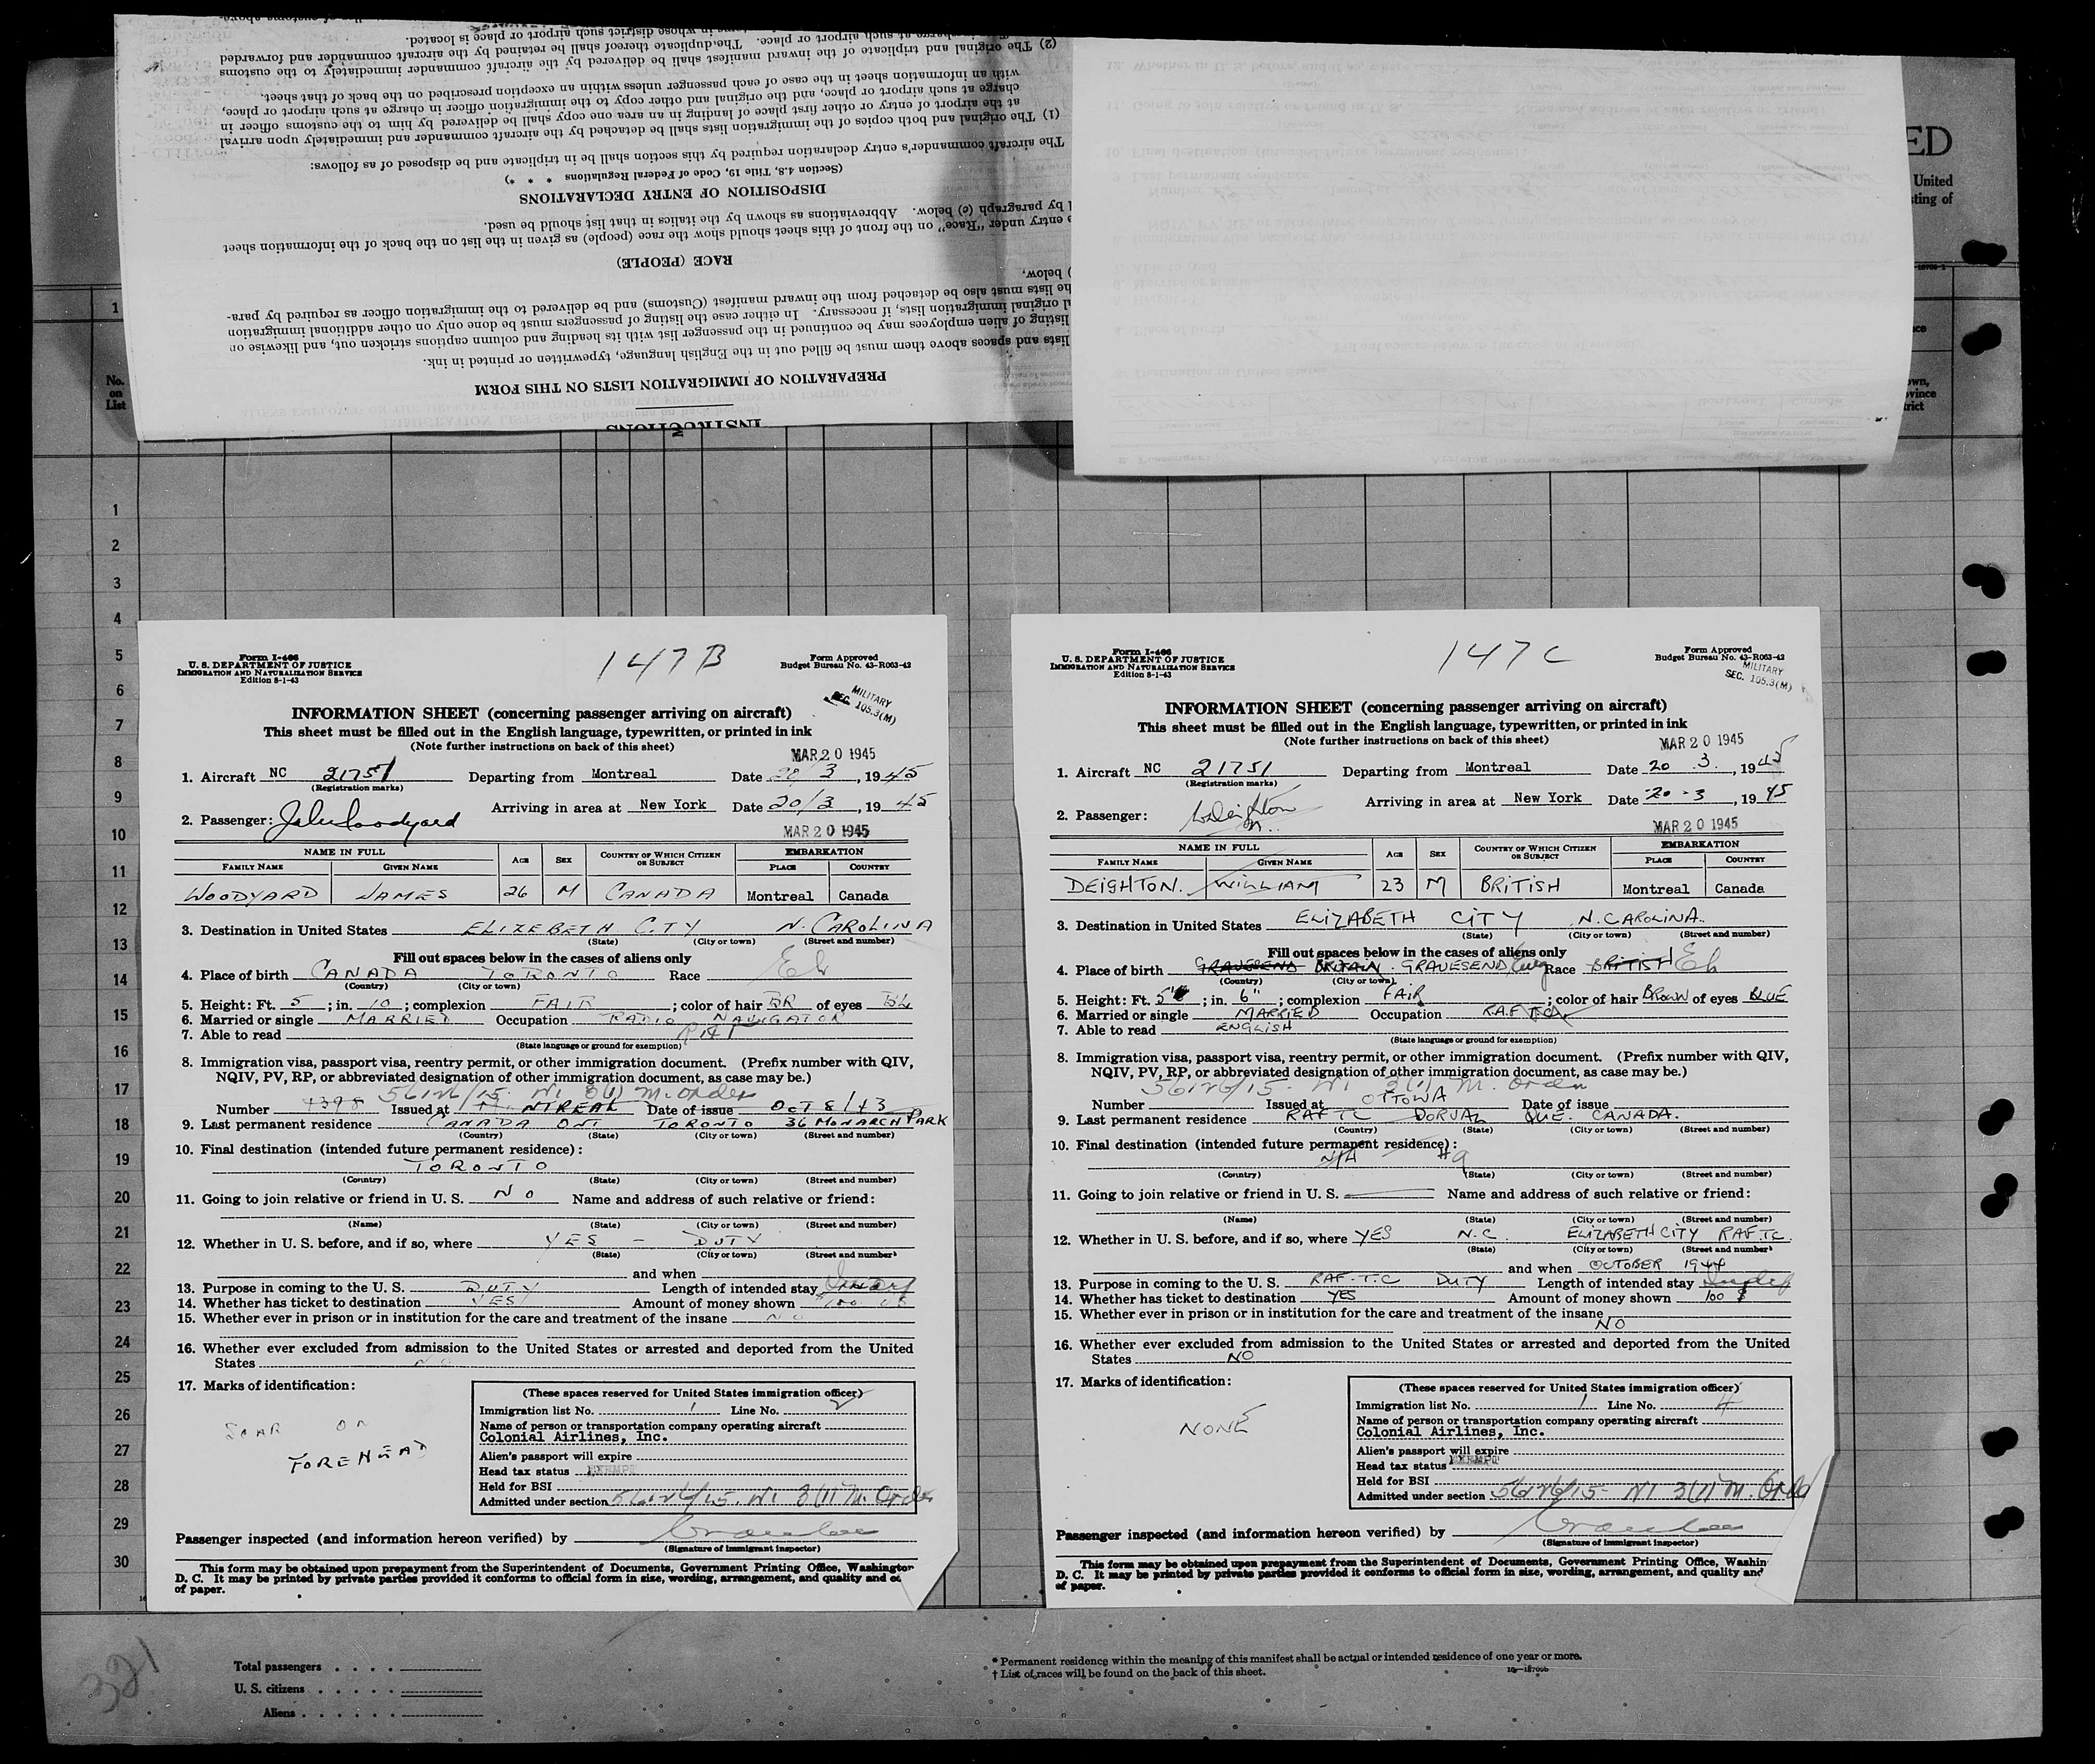 INSTRUCTIONS
PREPARATION OF IMMIGRATION LISTS ON THIS FORM
lists and spaces above them must be filled out in the English language, typewritten or printed in ink.
listing of alien employees may be continued in the passenger list with its heading and column captions stricken out, and likewise on
al original immigration lists, if necessary. In either case the listing of passengers must be done only on other additional immigration
he lists must also be detached from the inward manifest (Customs) and be delivered to the immigration officer as required by para-
) below.
RACE (PEOPLE)
e entry under "Race" on the front of this sheet should show the race (people) as given in the list on the back of the information sheet
l by paragraph (c) below. Abbreviations as shown by the italics in that list should be used.
DISPOSITION OF ENTRY DECLARATIONS
(Section 4.8, Title 19, Code of Federal Regulations * * *)
The aircraft commander's entry declaration required by this section shall be in triplicate and be disposed of as follows:
(1) The original and both copies of the immigration lists shall be detached by the aircraft commander and immediately upon arrival
at the airport of entry or other first place of landing in an area one copy shall be delivered by him to the customs officer in
charge at such airport or place, and the original and other copy to the immigration officer in charge at such airport or place,
with an information sheet in the case of each passenger unless within an exception prescribed on the back of that sheet.
(2) The original and triplicate of the inward manifest shall be delivered by the aircraft commander immediately to the customs
at such airport or place. The duplicate thereof shall be retained by the aircraft commander and forwarded
in whose district such airport or place is located.
ED
United
ting of
No.
on
List
own,
ovince
trict
1
1
2
3
4
5
6
7
8
9
10
11
12
13
14
15
16
17
18
19
20
21
22
23
24
25
26
27
28
29
30
Form I-466
U. S. DEPARTMENT OF JUSTICE
IMMIGRATION AND NATURALIZATION SERVICE
Edition 8-1-43
147B
Form Approved
Budget Bureau No. 43-R063-42
MILITARY
SEC. 105.3(M)
INFORMATION SHEET (concerning passenger arriving on aircraft)
This sheet must be filled out in the English language, typewritten, or printed in ink
(Note further instructions on back of this sheet)
MAR 20 1945
1. Aircraft NC 21751 Departing from Montreal Date 20/3, 1945
(Registration marks)
Arriving in area at New York Date 20/3, 1945
2. Passenger:
MAR 20 1945
NAME IN FULL AGE SEX COUNTRY OF WHICH CITIZEN OR SUBJECT EMBARKATION
FAMILY NAME GIVEN NAME PLACE COUNTRY
WOODYARD JAMES 26 M CANADA Montreal Canada
3. Destination in United States ELIZEBETH CITY N. CAROLINA
(State) (City or town) (Street and number)
Fill out spaces below in the cases of aliens only
4. Place of birth CANADA TORONTO Race Eh
(Country) (City or town)
5. Height: Ft. 5; in. 10; complexion FAIR; color of hair BR of eyes BL
6. Married or single MARRIED Occupation RADIO NAVIGATOR
7. Able to read
(State language or ground for exemption)
8. Immigration visa, passport visa, reentry permit, or other immigration document. (Prefix number with QIV,
NQIV, PV, RP, or abbreviated designation of other immigration document, as case may be.)
56126/15. WI 3(1) M. Order
Number 4398 Issued at MONTREAL Date of issue OCT 8/43
9. Last permanent residence CANADA ONT TORONTO 36 MONARCH PARK
(Country) (State) (City or town) (Street and number)
10. Final destination (intended future permanent residence):
TORONTO
(Country) (State) (City or town) (Street and number)
11. Going to join relative or friend in U. S. NO Name and address of such relative or friend:
(Name) (State) (City or town) (Street and number)
12. Whether in U. S. before, and if so, where YES - DUTY
(State) (City or town) (Street and number)
and when
13. Purpose in coming to the U. S. DUTY Length of intended stay
14. Whether has ticket to destination YES Amount of money shown $100
15. Whether ever in prison or in institution for the care and treatment of the insane NO
16. Whether ever excluded from admission to the United States or arrested and deported from the United
States NO
17. Marks of identification:
SCAR ON
FOREHEAD
(These spaces reserved for United States immigration officer)
Immigration list No. 1 Line No. 2
Name of person or transportation company operating aircraft
Colonial Airlines, Inc.
Alien's passport will expire
Head tax status EXEMPT
Held for BSI
Admitted under section 56126/15. WI 3(1) M. Order
Passenger inspected (and information hereon verified) by
(Signature of immigrant inspector)
This form may be obtained upon prepayment from the Superintendent of Documents, Government Printing Office, Washington
D. C. It may be printed by private parties provided it conforms to official form in size, wording, arrangement, and quality and
of paper.
Form I-466
U. S. DEPARTMENT OF JUSTICE
IMMIGRATION AND NATURALIZATION SERVICE
Edition 8-1-43
147C
Form Approved
Budget Bureau No. 43-R063-42
MILITARY
SEC. 105.3(M)
INFORMATION SHEET (concerning passenger arriving on aircraft)
This sheet must be filled out in the English language, typewritten, or printed in ink
(Note further instructions on back of this sheet)
MAR 20 1945
1. Aircraft NC 21751 Departing from Montreal Date 20 . 3 ., 1945
(Registration marks)
Arriving in area at New York Date 20 - 3, 1945
2. Passenger: WDeighton
MAR 20 1945
NAME IN FULL AGE SEX COUNTRY OF WHICH CITIZEN OR SUBJECT EMBARKATION
FAMILY NAME GIVEN NAME PLACE COUNTRY
DEIGHTON. WILLIAM 23 M BRITISH Montreal Canada
3. Destination in United States ELIZABETH CITY N. CAROLINA.
(State) (City or town) (Street and number)
Fill out spaces below in the cases of aliens only
4. Place of birth GRAVESEND BRITAIN. GRAVESEND Eng Race BRITISH Eh
(Country) (City or town)
5. Height: Ft. 5'; in. 6"; complexion FAIR; color of hair BROWN of eyes BLUE
6. Married or single MARRIED Occupation R.A.F T.C.
7. Able to read ENGLISH
(State language or ground for exemption)
8. Immigration visa, passport visa, reentry permit, or other immigration document. (Prefix number with QIV,
NQIV, PV, RP, or abbreviated designation of other immigration document, as case may be.)
56126/15- WI 3(1) M. Order
Number Issued at OTTOWA Date of issue
9. Last permanent residence RAFTC DORVAL QUE. CANADA.
(Country) (State) (City or town) (Street and number)
10. Final destination (intended future permanent residence):
N/A
(Country) (State) (City or town) (Street and number)
11. Going to join relative or friend in U. S. Name and address of such relative or friend:
(Name) (State) (City or town) (Street and number)
12. Whether in U. S. before, and if so, where YES N.C. ELIZABETH CITY RAF.TC.
(State) (City or town) (Street and number)
and when OCTOBER 1944
13. Purpose in coming to the U. S. RAF.T.C DUTY Length of intended stay
14. Whether has ticket to destination YES Amount of money shown 100 $
15. Whether ever in prison or in institution for the care and treatment of the insane
NO
16. Whether ever excluded from admission to the United States or arrested and deported from the United
States NO
17. Marks of identification:
NONE
(These spaces reserved for United States immigration officer)
Immigration list No. 1 Line No. 4
Name of person or transportation company operating aircraft
Colonial Airlines, Inc.
Alien's passport will expire
Head tax status EXEMPT
Held for BSI
Admitted under section 56126/15- WI 3(1) M. Order
Passenger inspected (and information hereon verified) by
(Signature of immigrant inspector)
This form may be obtained upon prepayment from the Superintendent of Documents, Government Printing Office, Washin
D. C. It may be printed by private parties provided it conforms to official form in size, wording, arrangement, and quality and
of paper.
321
Total passengers . . . .
U. S. citizens . . . . .
Aliens . . . . . .
* Permanent residence within the meaning of this manifest shall be actual or intended residence of one year or more.
† List of races will be found on the back of this sheet.